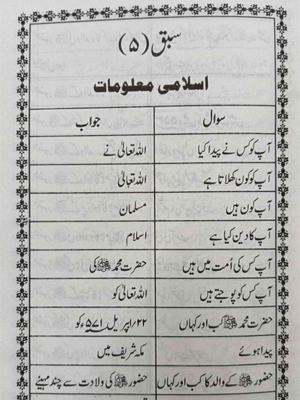 سبق (۵)
اسلامی معلومات
سوال جواب
آپ کو کس نے پیدا کیا اللہ تعالیٰ نے
آپ کو کون کھلاتا ہے اللہ تعالیٰ
آپ کون ہیں مسلمان
آپ کا دین کیا ہے اسلام
آپ کس کی اُمت میں ہیں حضرت محمد ﷺ کی
آپ کس کو پوجتے ہیں اللہ تعالیٰ کو
حضرت محمد ﷺ کب اور کہاں ۲۲/اپریل ۵۷۱ء کو
پیدا ہوئے مکہ شریف میں
حضور ﷺ کے والد کا کب اور کہاں حضور ﷺ کی ولادت سے چند مہینے